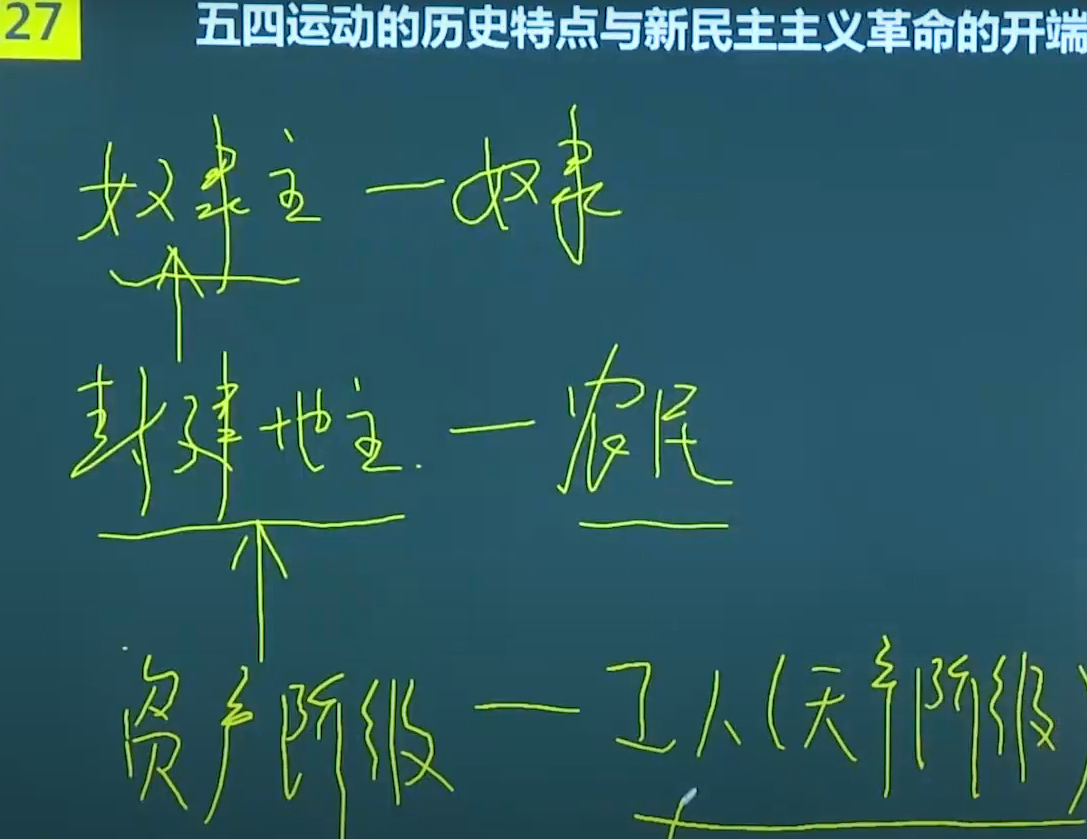 27
五四运动的历史特点与新民主主义革命的开端
奴隶主 — 奴隶
封建地主 — 农民
资产阶级 — 工人(无产阶级)